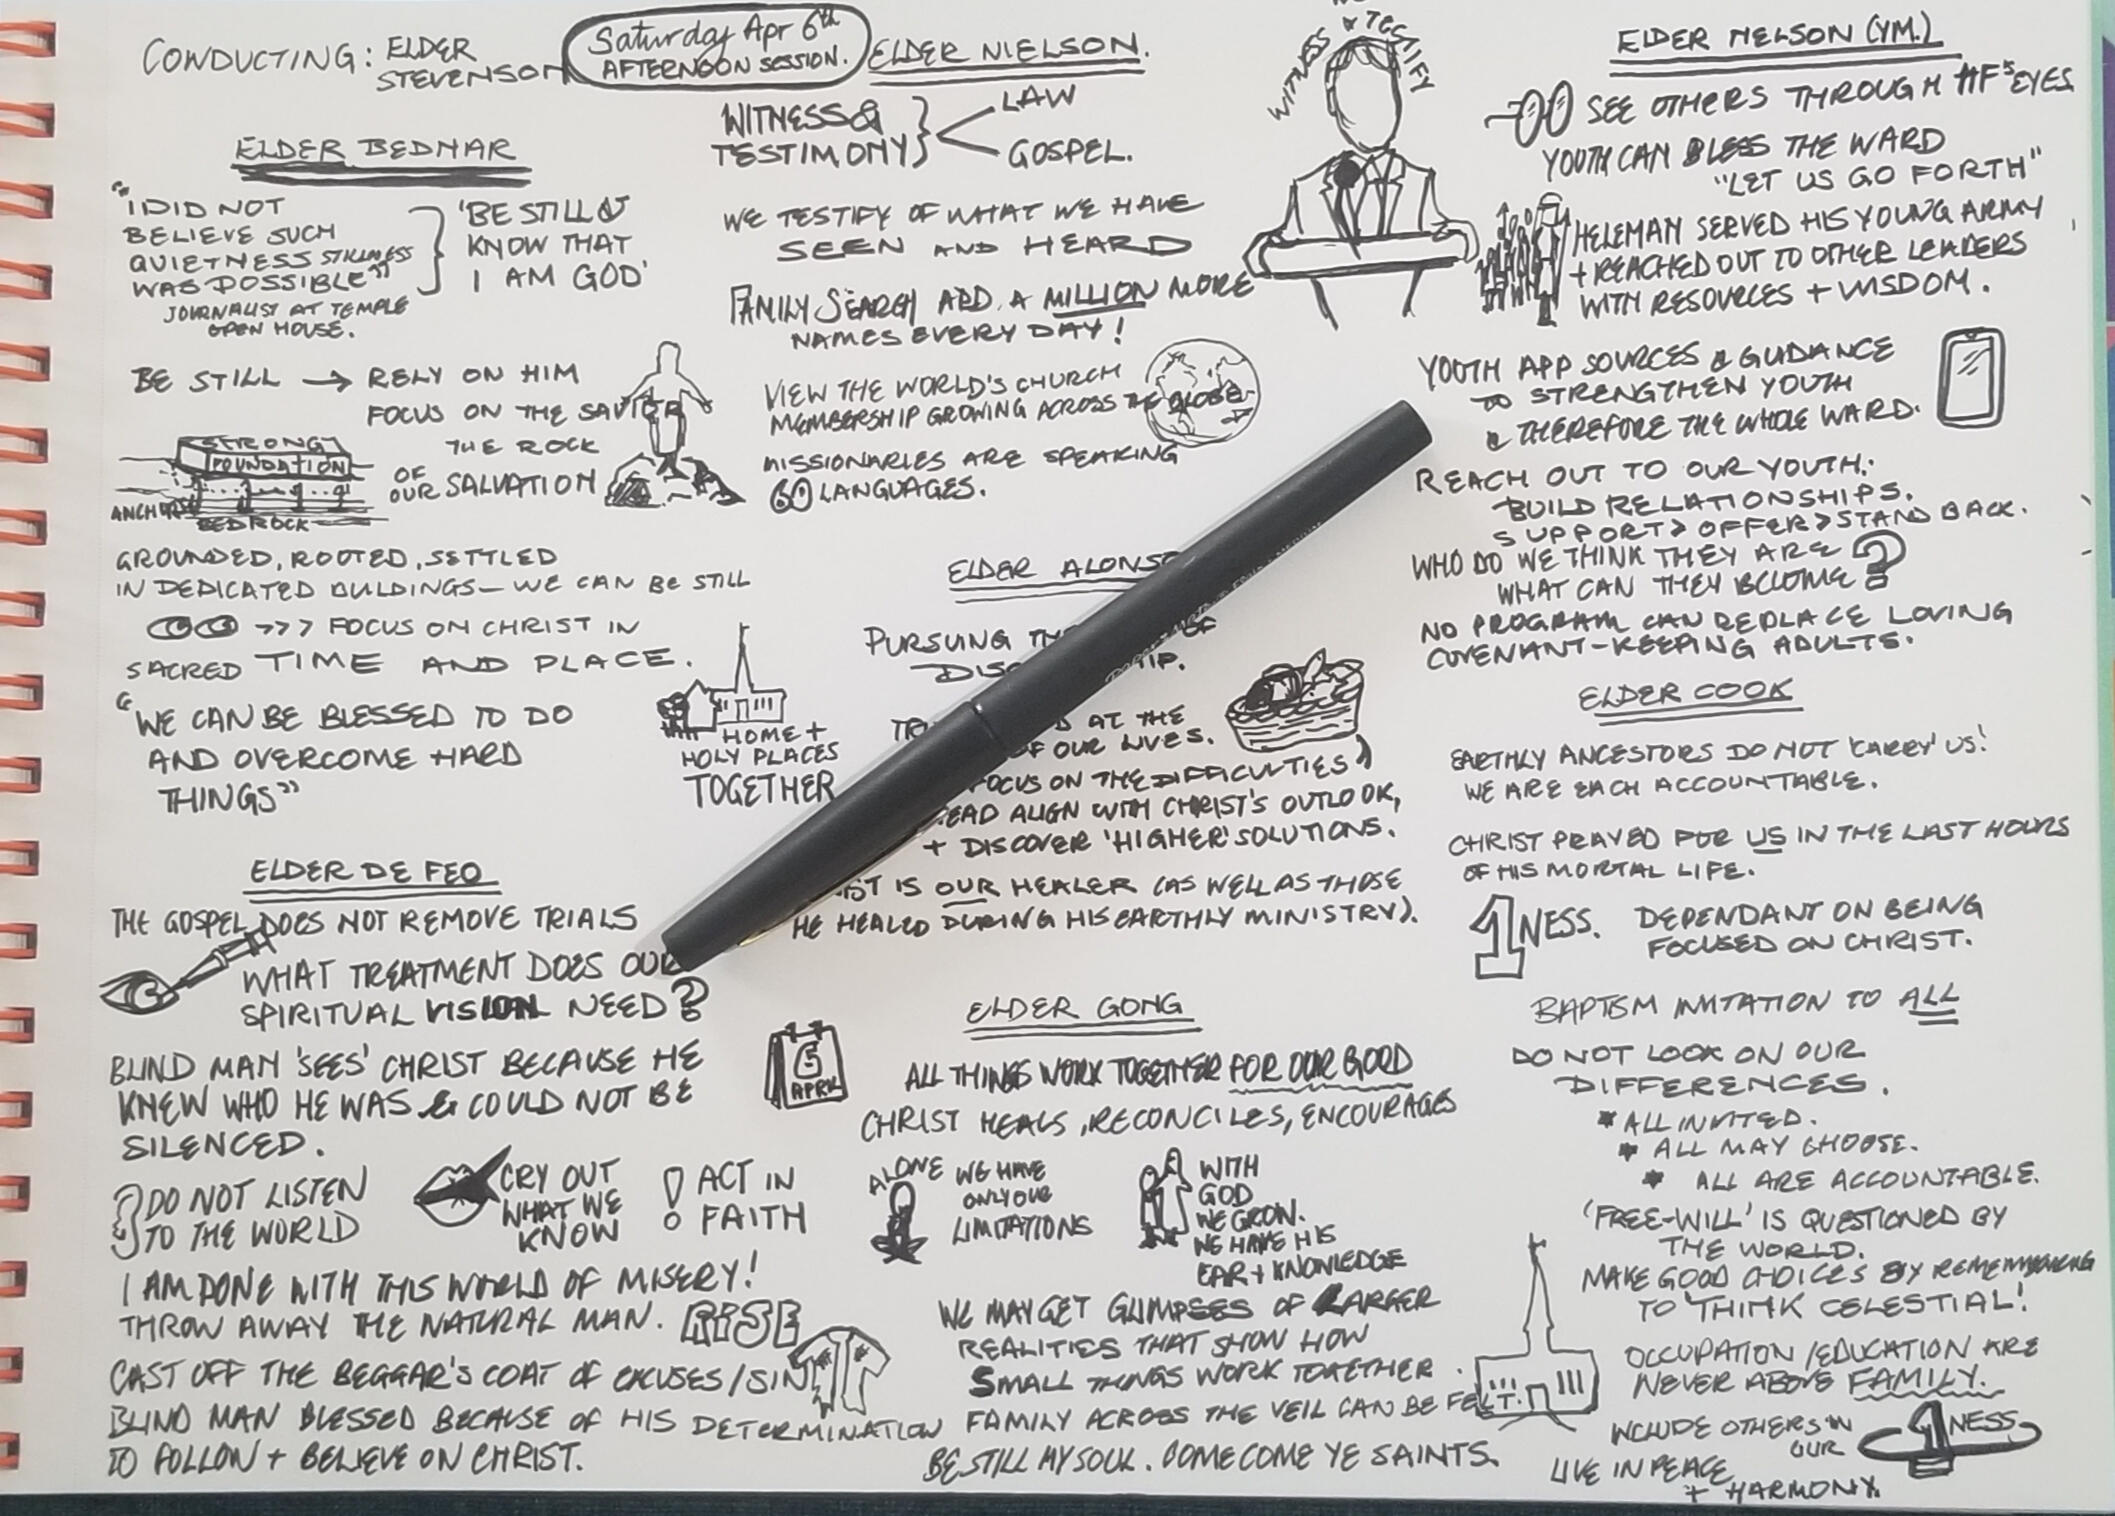 CONDUCTING: ELDER
STEVENSON
Saturday Apr 6th
AFTERNOON SESSION.
ELDER BEDNAR
"I DID NOT
BELIEVE SUCH
QUIETNESS STILLNESS
WAS POSSIBLE"
JOURNALIST AT TEMPLE
OPEN HOUSE.
'BE STILL &
KNOW THAT
I AM GOD'
BE STILL → RELY ON HIM
FOCUS ON THE SAVIOR
THE ROCK
OF
OUR SALVATION
STRONG
FOUNDATION
BEDROCK
GROUNDED, ROOTED, SETTLED
IN DEDICATED BUILDINGS - WE CAN BE STILL
>>> FOCUS ON CHRIST IN
SACRED TIME AND PLACE.
"WE CAN BE BLESSED TO DO
AND OVERCOME HARD
THINGS"
HOME +
HOLY PLACES
TOGETHER
ELDER DE FEO
THE GOSPEL DOES NOT REMOVE TRIALS
WHAT TREATMENT DOES OUR
SPIRITUAL VISION NEED?
BLIND MAN 'SEES' CHRIST BECAUSE HE
KNEW WHO HE WAS & COULD NOT BE
SILENCED.
DO NOT LISTEN
TO THE WORLD
CRY OUT
WHAT WE
KNOW
! ACT IN
FAITH
I AM DONE WITH THIS WORLD OF MISERY!
THROW AWAY THE NATURAL MAN. RISE
CAST OFF THE BEGGAR'S COAT OF EXCUSES/SIN
BLIND MAN BLESSED BECAUSE OF HIS DETERMINATION
TO FOLLOW + BELIEVE ON CHRIST.
ELDER NIELSON.
WITNESS &
TESTIMONY
LAW
GOSPEL.
WITNESS & TESTIFY
WE TESTIFY OF WHAT WE HAVE
SEEN AND HEARD
FAMILY SEARCH ADD A MILLION MORE
NAMES EVERY DAY!
VIEW THE WORLD'S CHURCH
MEMBERSHIP GROWING ACROSS THE GLOBE
MISSIONARIES ARE SPEAKING
60 LANGUAGES.
ELDER ALONSO
PURSUING OF
AT THE
OF OUR LIVES.
FOCUS ON THE DIFFICULTIES
ALIGN WITH CHRIST'S OUTLOOK,
+ DISCOVER 'HIGHER' SOLUTIONS.
IS OUR HEALER (AS WELL AS THOSE
HE HEALED DURING HIS EARTHLY MINISTRY).
ELDER GONG
5
APRIL
ALL THINGS WORK TOGETHER FOR OUR GOOD
CHRIST HEALS, RECONCILES, ENCOURAGES
ALONE WE HAVE
ONLY OUR
LIMITATIONS
WITH
GOD
WE GROW.
WE HAVE HIS
EAR + KNOWLEDGE
WE MAY GET GLIMPSES OF LARGER
REALITIES THAT SHOW HOW
SMALL THINGS WORK TOGETHER.
FAMILY ACROSS THE VEIL CAN BE FELT.
BE STILL MY SOUL. COME COME YE SAINTS.
ELDER NELSON (YM.)
SEE OTHERS THROUGH HF'S EYES
YOUTH CAN BLESS THE WARD
"LET US GO FORTH"
HELEMAN SERVED HIS YOUNG ARMY
+ REACHED OUT TO OTHER LEADERS
WITH RESOURCES + WISDOM.
YOUTH APP SOURCES & GUIDANCE
TO STRENGTHEN YOUTH
& THEREFORE THE WHOLE WARD.
REACH OUT TO OUR YOUTH.
BUILD RELATIONSHIPS.
SUPPORT > OFFER > STAND BACK.
WHO DO WE THINK THEY ARE
WHAT CAN THEY BECOME?
NO PROGRAM CAN REPLACE LOVING
COVENANT-KEEPING ADULTS.
ELDER COOK
EARTHLY ANCESTORS DO NOT 'CARRY' US!
WE ARE EACH ACCOUNTABLE.
CHRIST PRAYED FOR US IN THE LAST HOURS
OF HIS MORTAL LIFE.
1NESS. DEPENDANT ON BEING
FOCUSED ON CHRIST.
BAPTISM INVITATION TO ALL
DO NOT LOOK ON OUR
DIFFERENCES.
* ALL INVITED.
* ALL MAY CHOOSE.
* ALL ARE ACCOUNTABLE.
'FREE-WILL' IS QUESTIONED BY
THE WORLD.
MAKE GOOD CHOICES BY REMEMBERING
TO 'THINK CELESTIAL!
OCCUPATION/EDUCATION ARE
NEVER ABOVE FAMILY.
INCLUDE OTHERS IN
OUR 1NESS
LIVE IN PEACE
+ HARMONY.